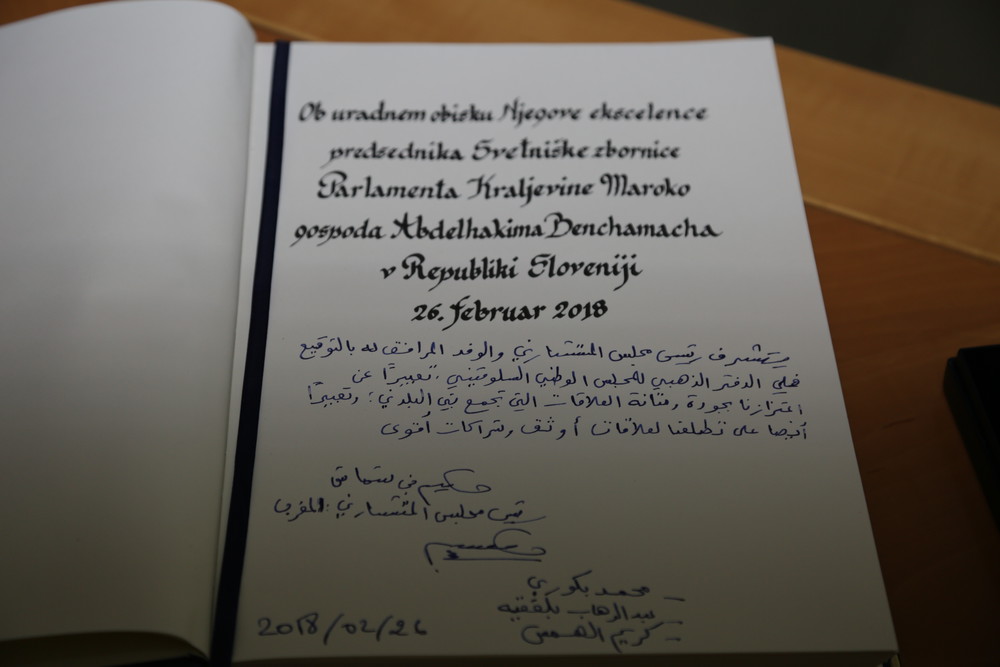 Ob uradnem obisku Njegove ekscelence
predsednika Svetniške zbornice
Parlamenta Kraljevine Maroko
gospoda Abdelhakima Benchamacha
v Republiki Sloveniji
26. februar 2018
يتشرف رئيس مجلس المستشارين والوفد المرافق له بالتوقيع
على الدفتر الذهبي للمجلس الوطني السلوفيني، تعبيرًا عن
اعتزازنا بجودة ومتانة العلاقات التي تجمع بين البلدين؛ وتعبيرًا
أيضا على تطلعنا لعلاقات أوثق وشراكات أقوى
حكيم بن شماش
رئيس مجلس المستشارين - المغرب
محمد بكوري
عبد الوهاب بلفقيه
كريم الهمس
2018/02/26